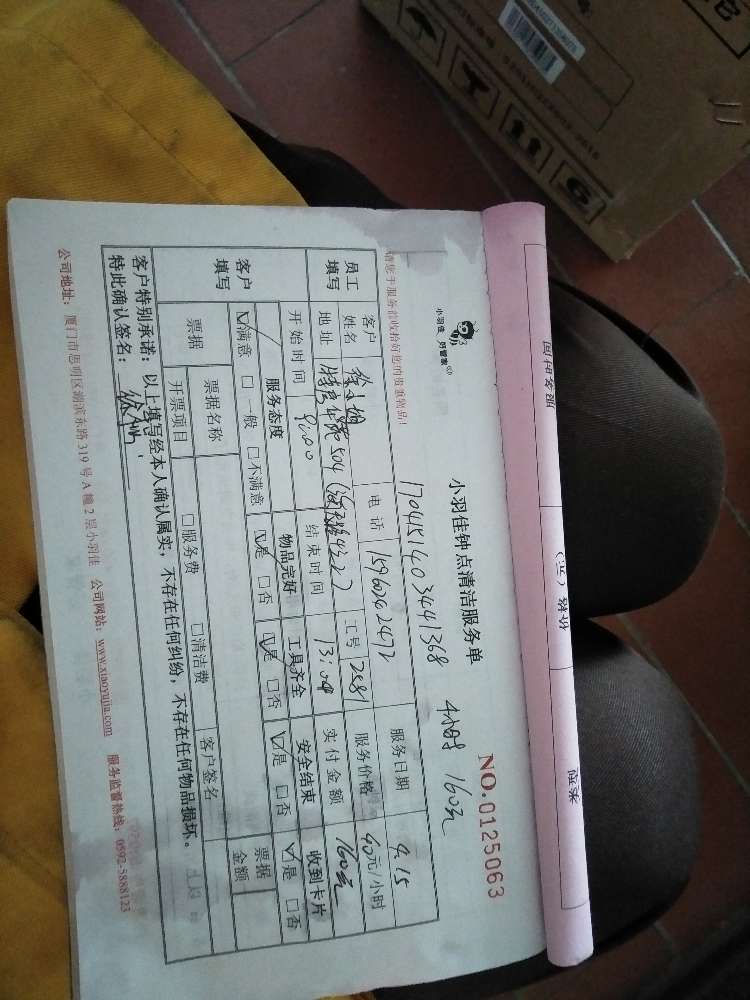 小羽佳 好管家
小羽佳钟点清洁服务单
NO.0125063
170451403441368 4小时 160元
请您于服务前收拾好您的贵重物品!
员工填写
客户姓名 徐小姐 电话 工号 2581 服务日期 9.15
地址 504 服务价格 40元/小时
开始时间 9:00 结束时间 13:00 实付金额 160元
客户填写
服务态度 物品完好 工具齐全 安全结束 收到卡片
☑满意 □一般 □不满意 ☑是 □否 ☑是 □否 ☑是 □否 ☑是 □否
票据 票据名称 票据金额
开票项目 □服务费 □清洁费 客户签名
客户特别承诺:以上填写经本人确认属实,不存在任何纠纷,不存在任何物品损坏。
特此确认签名:
公司地址:厦门市思明区湖滨东路319号A幢2层小羽佳 公司网站:www.xiaoyujia.com 服务监督热线:0592-5888123